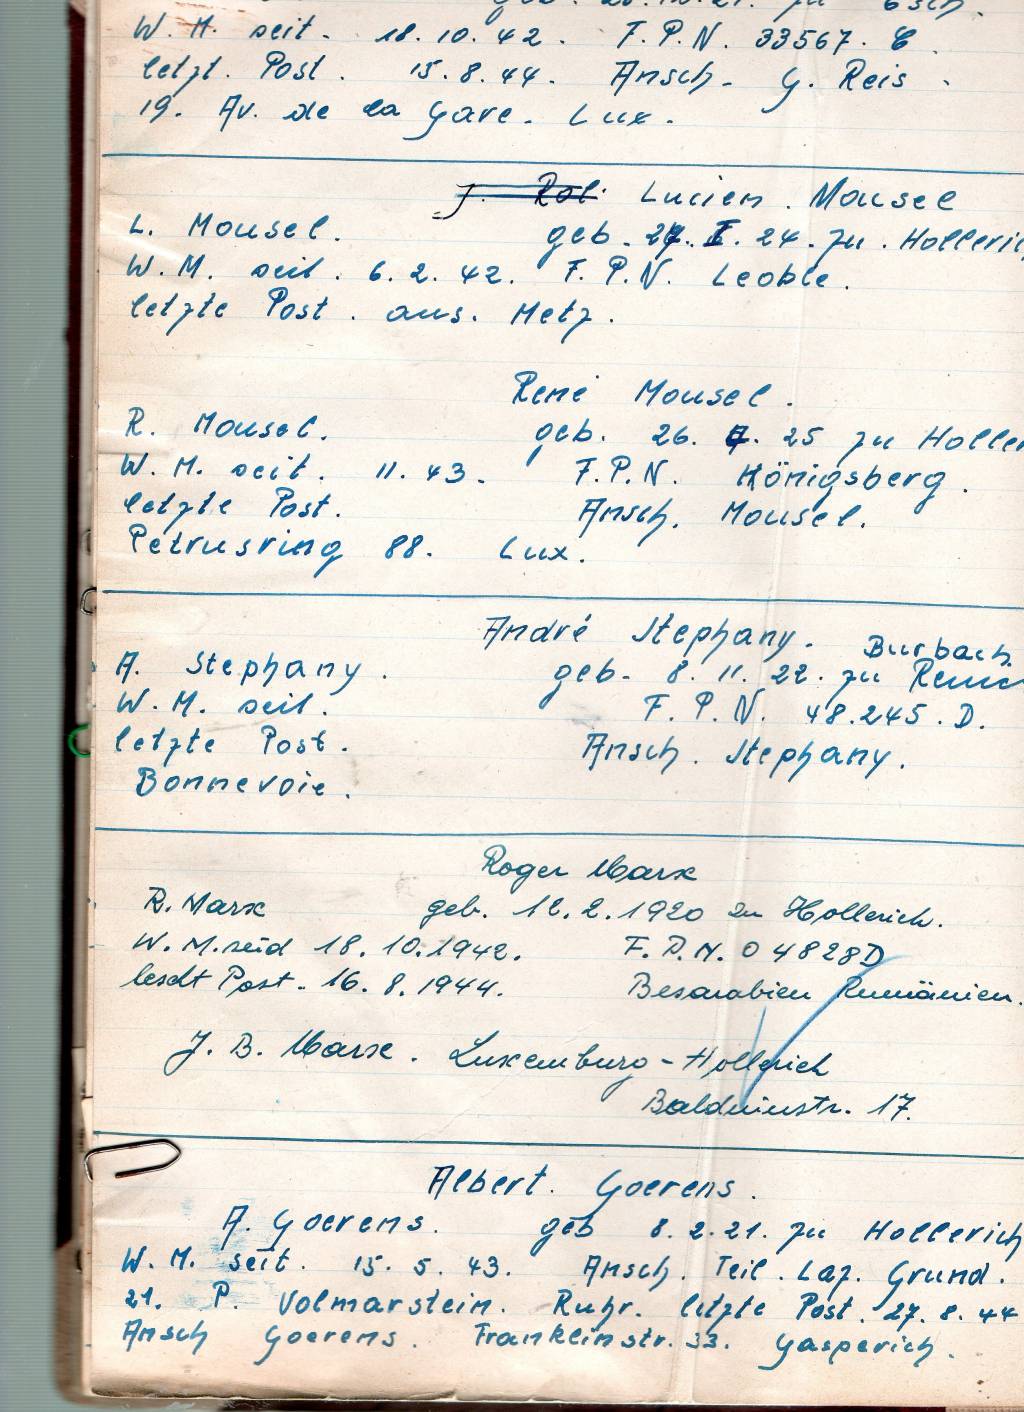 geb. 20.10.21. zu Esch.
W. M. seit. 18.10.42. F.P.N. 33567. C
letzt. Post. 15.8.44. Ansch. G. Reis.
19. Av. de la Gare. Lux.
Lucien. Mousel
L. Mousel. geb. 24. I. 24. zu. Hollerich
W. M. seit. 6. 2. 42. F. P. N. Leoble.
letzte Post. aus. Metz.
René Mousel.
R. Mousel. geb. 26. 7. 25 zu Holler
W. M. seit. 11. 43. F. P. N. Königsberg.
letzte Post. Ansch. Mousel.
Petrusring 88. Lux.
André Stephany. Burbach.
A. Stephany. geb. 8. 11. 22. zu
W. M. seit. F. P. N. 48.245. D.
letzte Post. Ansch. Stephany.
Bonnevoie.
Roger Marx
R. Marx geb. 12.2.1920 zu Hollerich.
W. M. seid 18. 10. 1942. F. P. N. 04828D
lescht Post. 16. 8. 1944. Besarabien Rumänien.
J. B. Marx. Luxemburg-Hollerich
Balduinstr. 17.
Albert. Goerens.
A. Goerens. geb 8. 2. 21. zu Hollerich
W. M. seit. 15. 5. 43. Ansch. Teil. Laz. Grund.
21. P. Volmarstein. Ruhr. letzte Post. 27. 8. 44
Ansch Goerens. Franklinstr. 33. Gasperich.